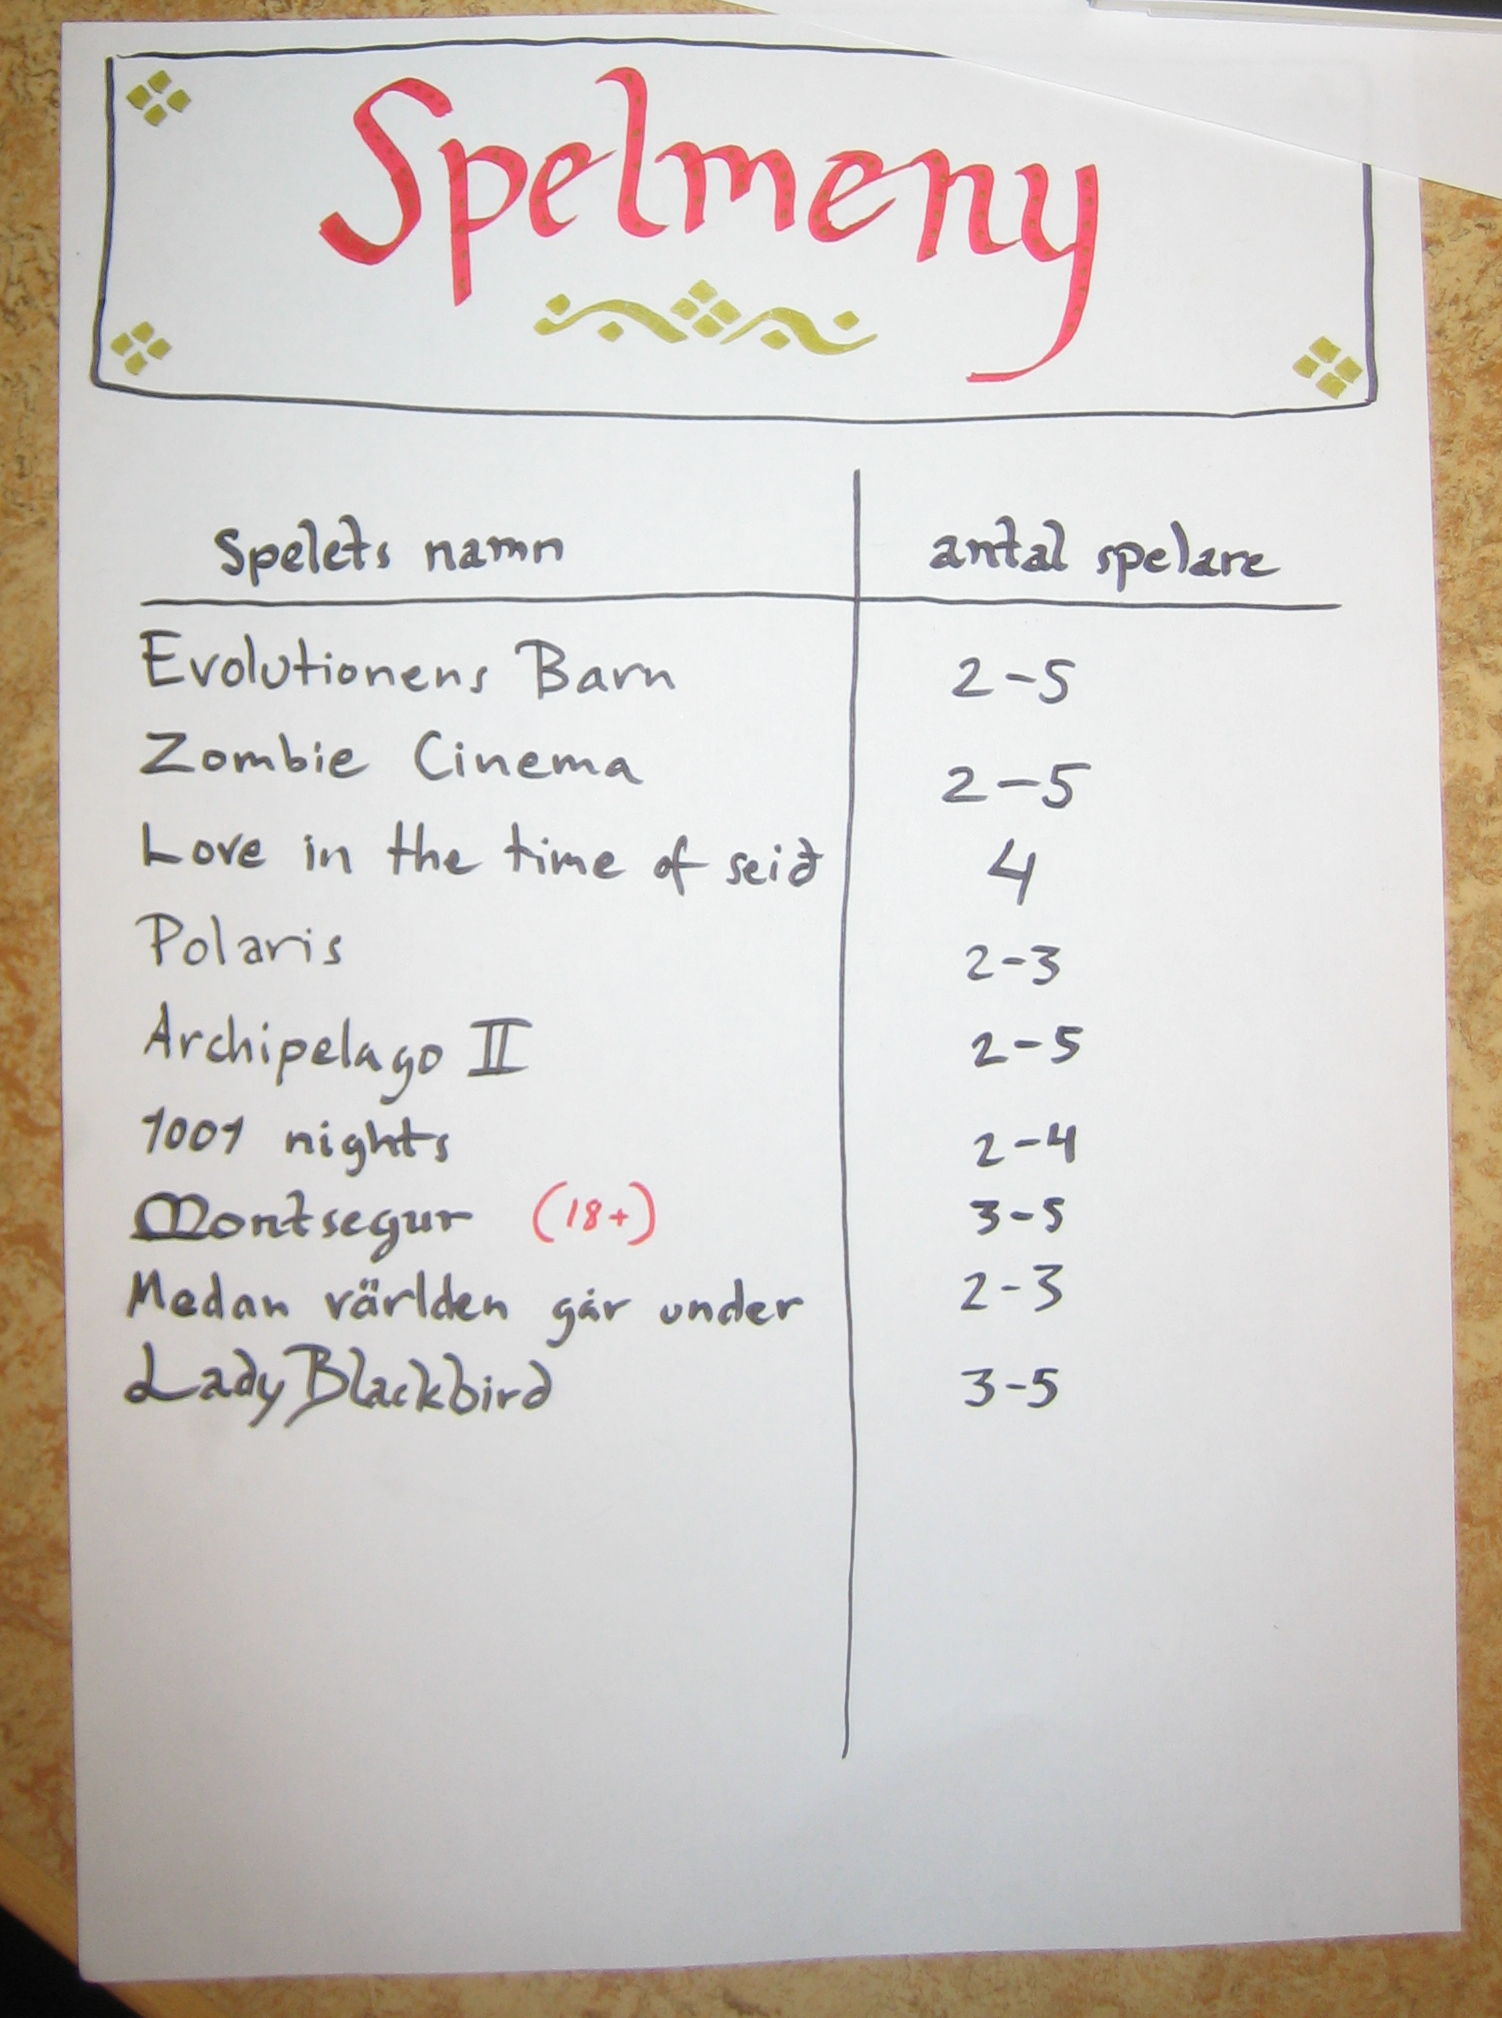 Spelmeny
Spelets namn antal spelare
Evolutionens Barn 2-5
Zombie Cinema 2-5
Love in the time of seið 4
Polaris 2-3
Archipelago II 2-5
1001 nights 2-4
Montsegur (18+) 3-5
Medan världen går under 2-3
Lady Blackbird 3-5